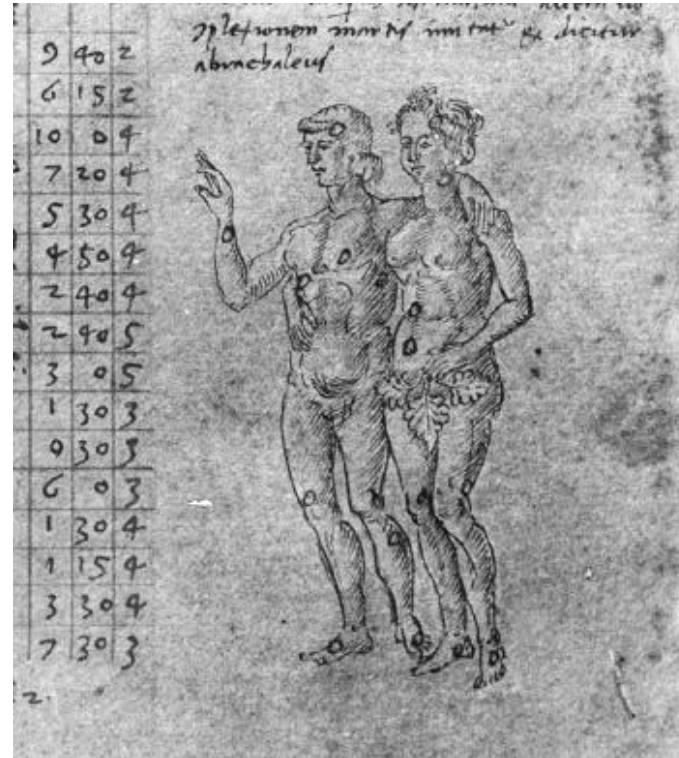 complexionem martis imitatur et dicitur
abrachaleus
9 40 2
6 15 2
10 0 4
7 20 4
5 30 4
4 50 4
2 40 4
2 40 5
3 0 5
1 30 3
0 30 3
6 0 3
1 30 4
1 15 4
3 30 4
7 30 3
2.